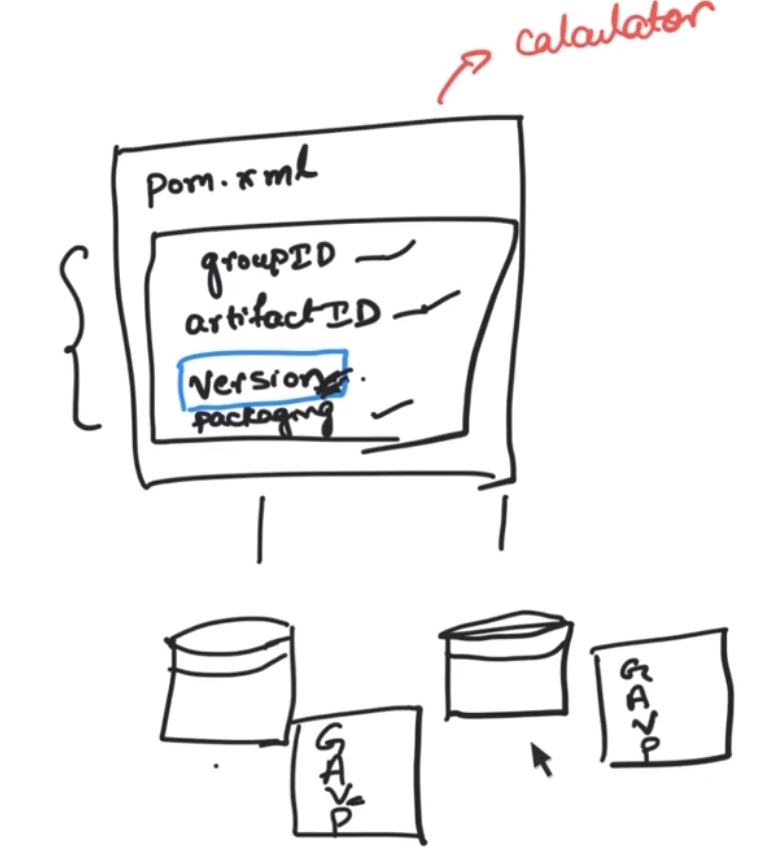 calculator
pom.xml
groupID
artifactID
version
packaging
G
A
V
P
G
A
V
P